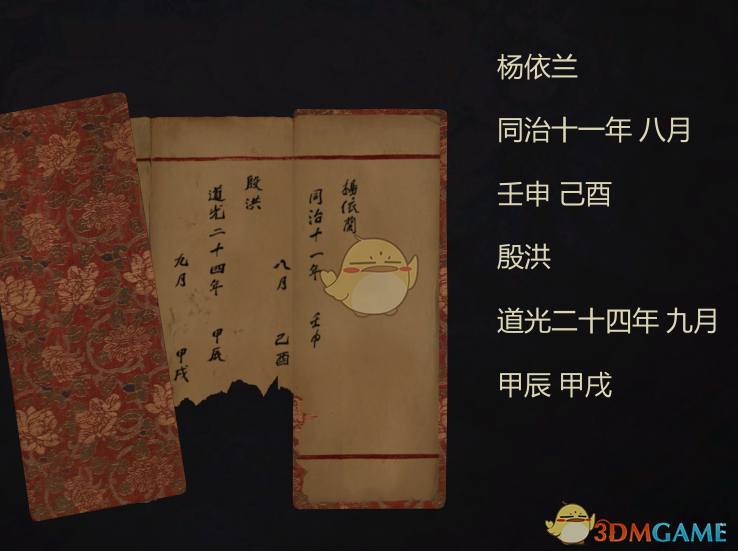 杨依兰
同治十一年 八月
壬申 己酉
殷洪
道光二十四年 九月
甲辰 甲戌
楊依蘭
同治十一年 壬申
八月 己酉
殷洪
道光二十四年 甲辰
九月 甲戌
3DMGAME